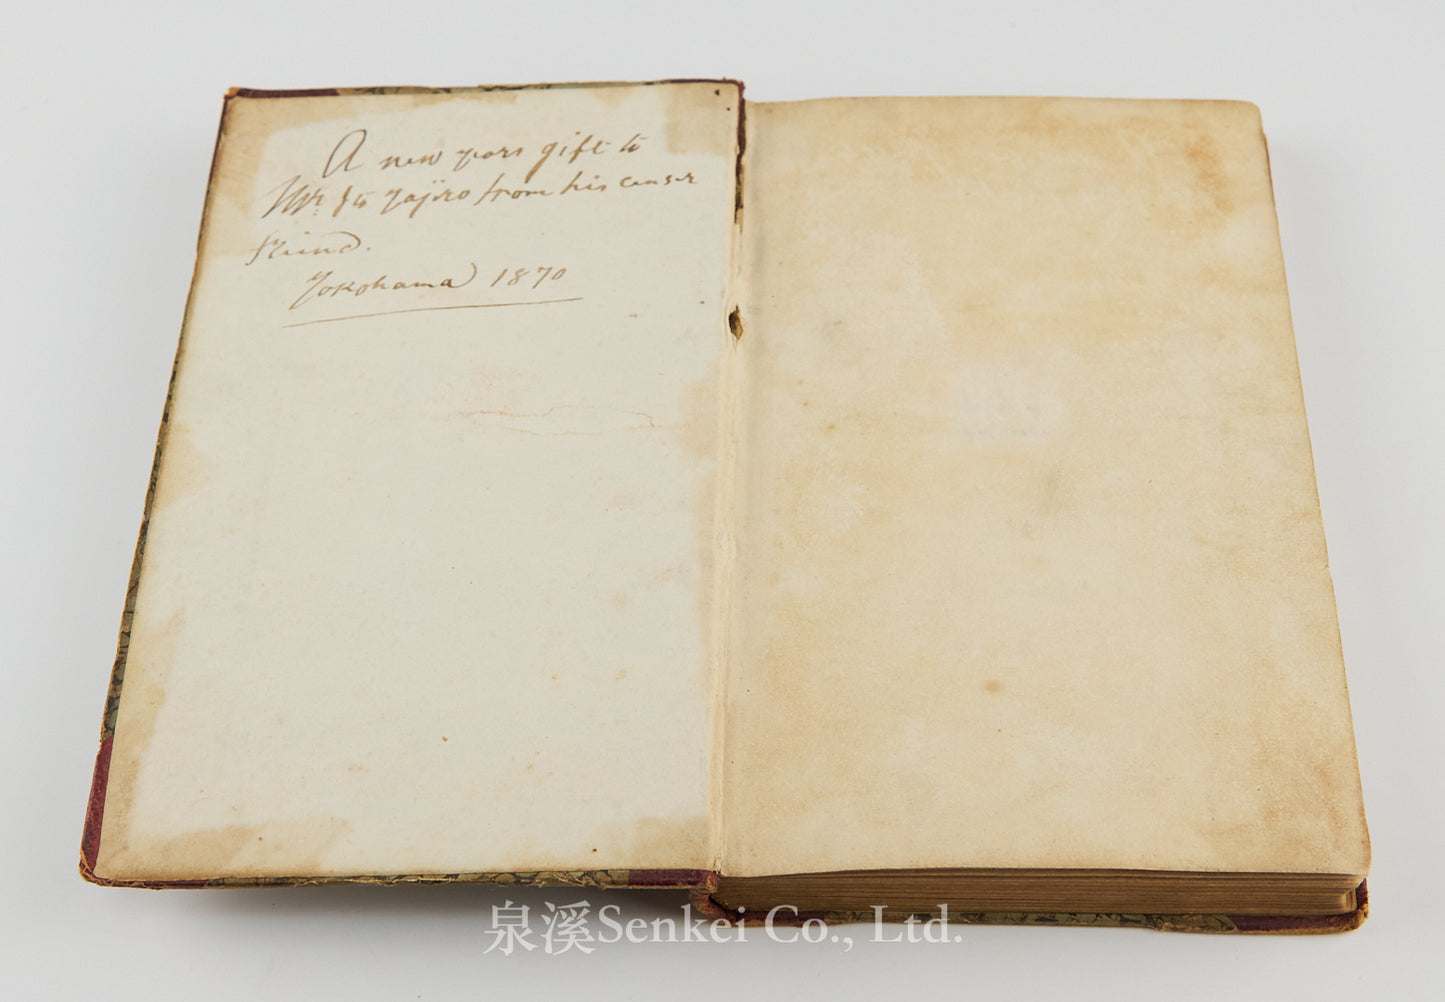 A new years gift to
Mr. Ito Yajiro from his
friend.
Yokohama 1870
泉溪Senkei Co., Ltd.